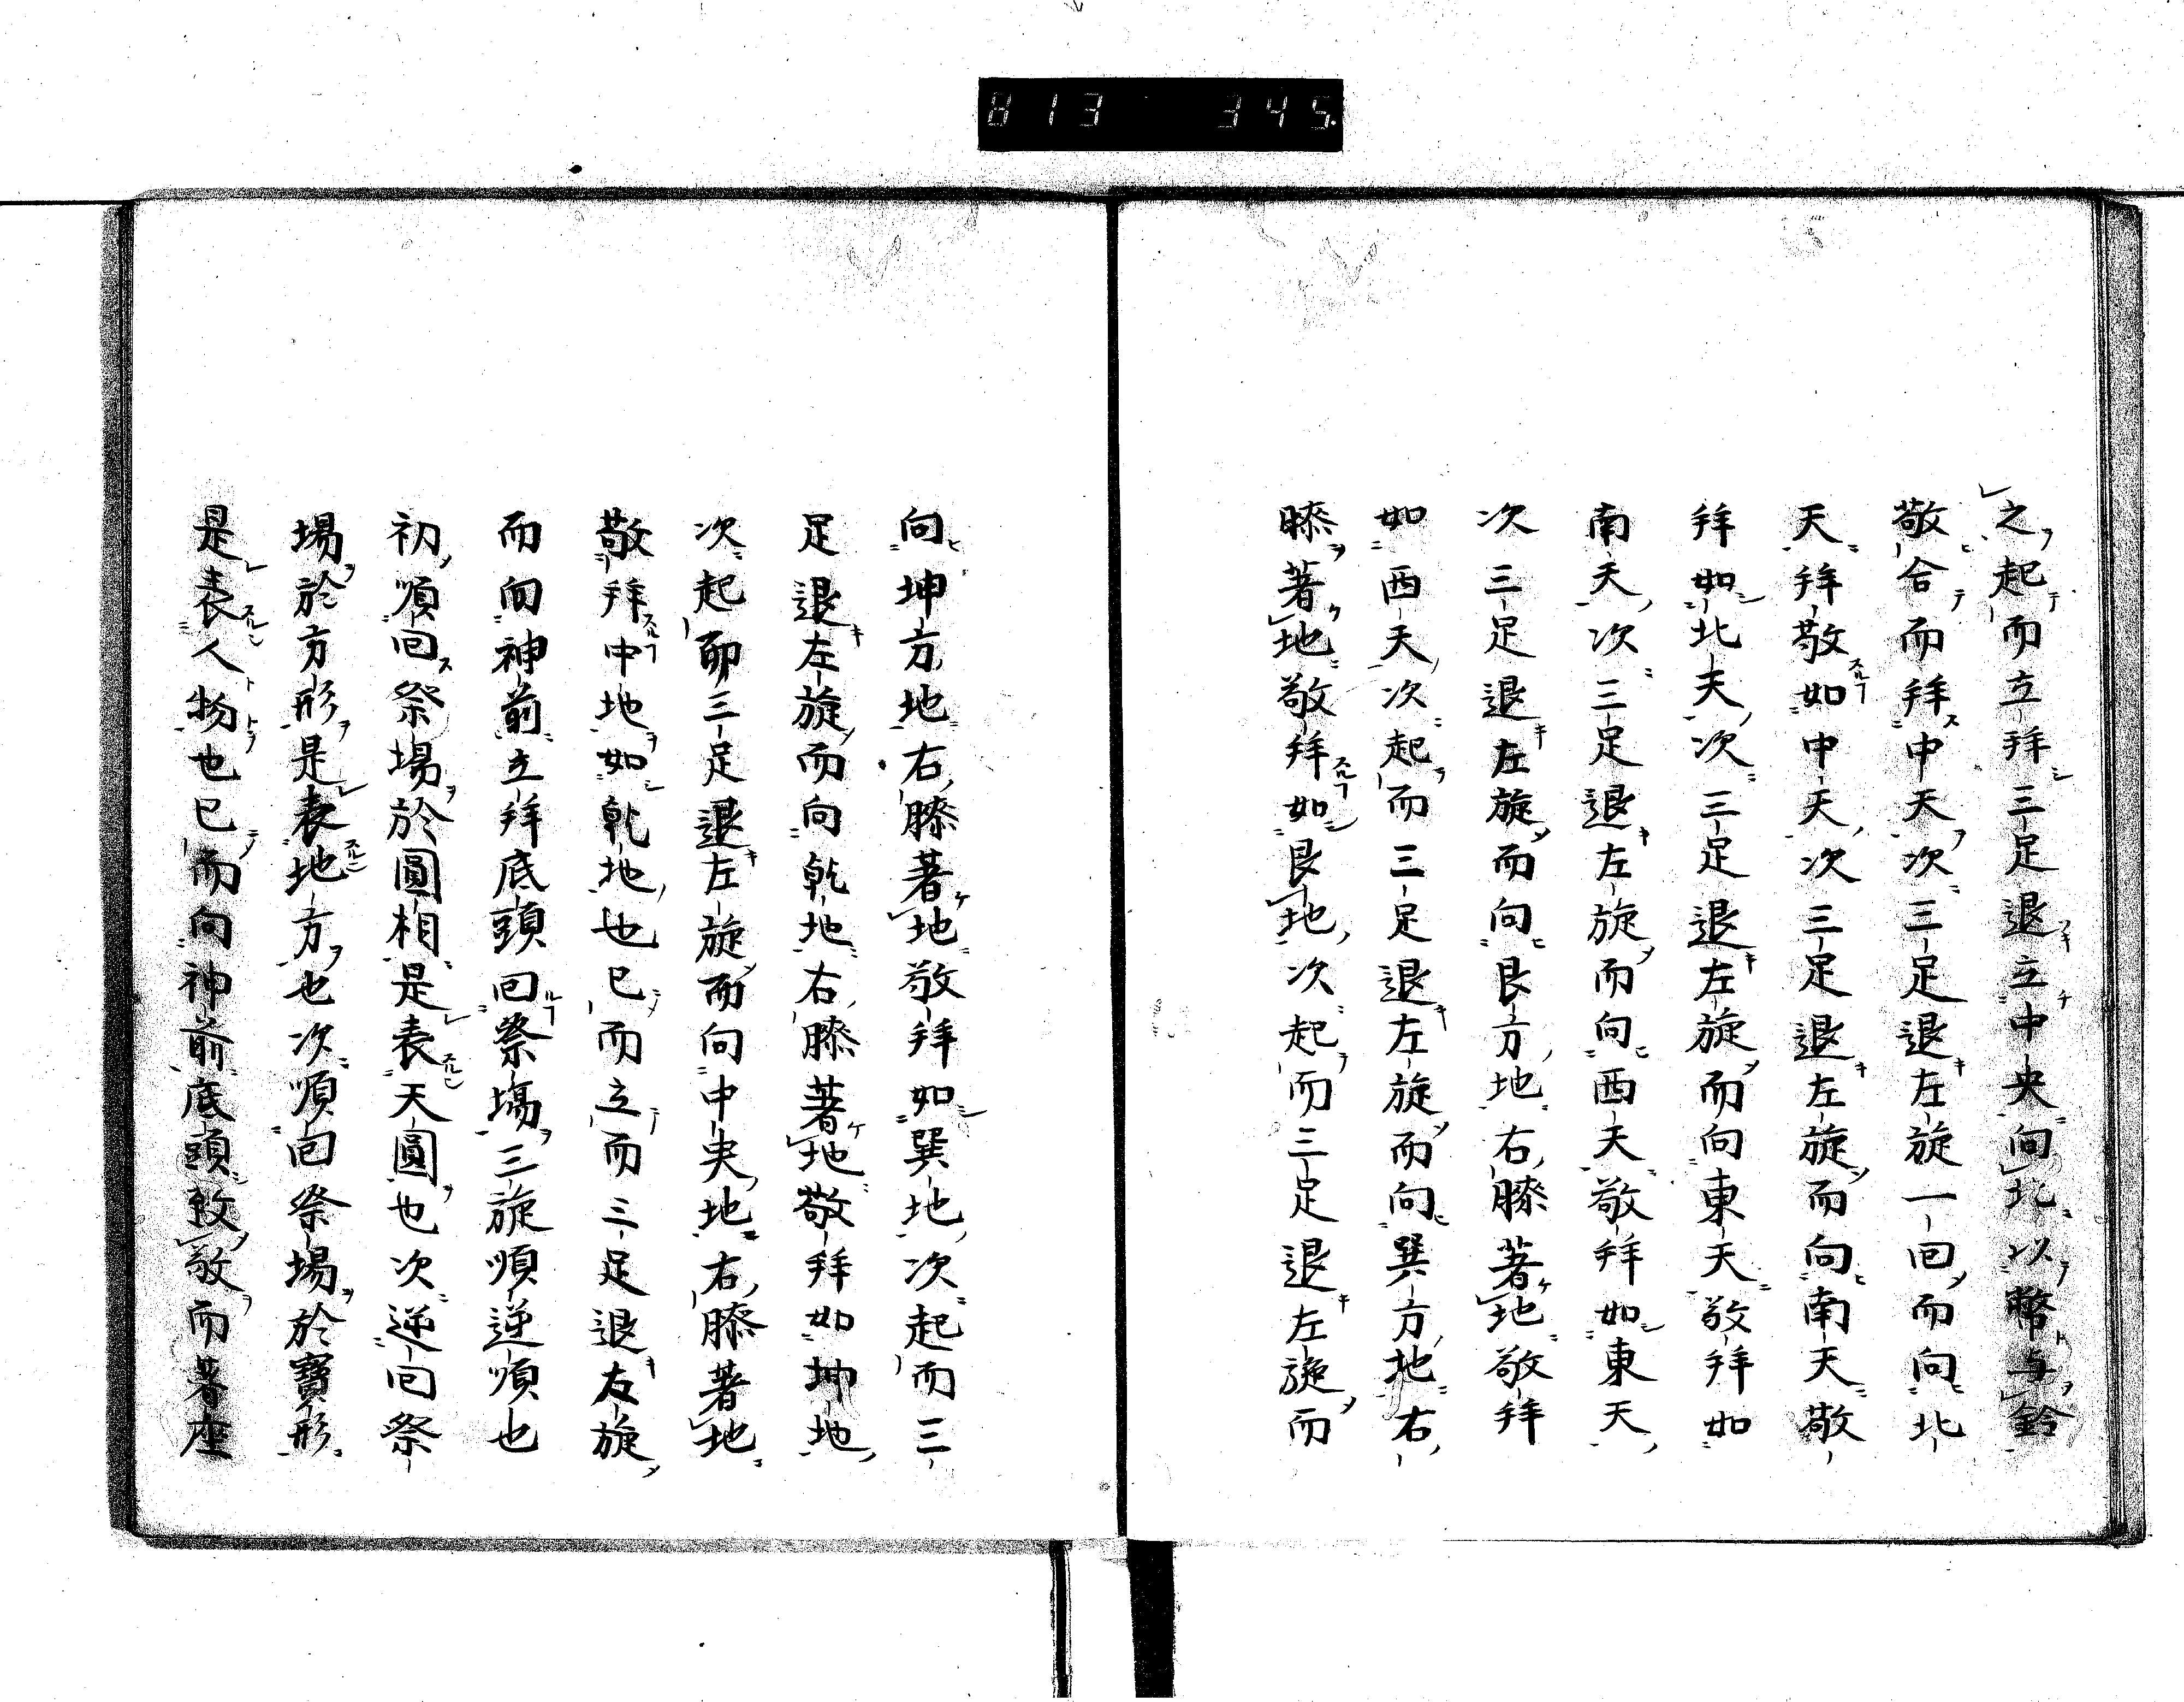 813 345.
之起而立拜三足退立中央向北以幣与鈴
敬合而拜中天次三足退左旋一回而向北
天拜敬如中天次三足退左旋而向南天敬
拜如北天次三足退左旋而向東天敬拜如
南天次三足退左旋而向西天敬拜如東天
次三足退左旋而向艮方地右膝著地敬拜
如西天次起而三足退左旋而向巽方地右
膝著地敬拜如艮地次起而三足退左旋而
向坤方地右膝著地敬拜如巽地次起而三
足退左旋而向乾地右膝著地敬拜如坤地
次起而三足退左旋而向中央地右膝著地
敬拜中地如乾地也已而立而三足退左旋
而向神前立拜底頭回祭場三旋順逆順也
初順回祭場於圓相是表天圓也次逆回祭
場於方形是表地方也次順回祭場於寶形
是表人物也已而向神前底頭致敬而著座